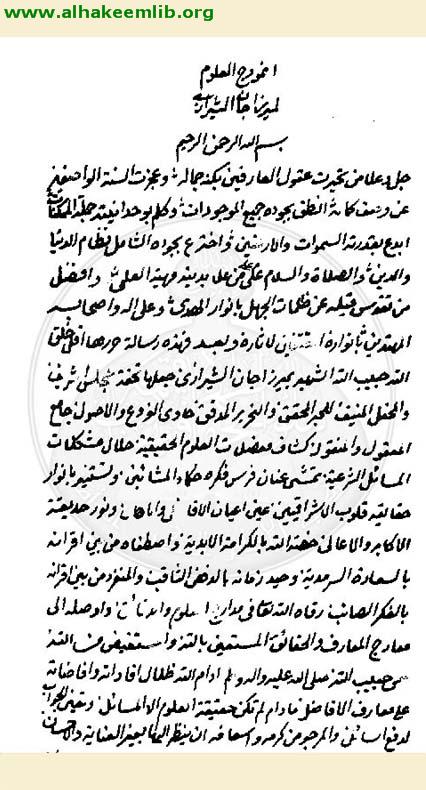 www.alhakeemlib.org
انموذج العلوم
لميرزاجان الشيرازي
بسم الله الرحمن الرحيم
جل وعلا من تحيرت عقول العارفين بكنه جماله وعجزت السنة الواصفين
عن وصف كماله النطق بجوده جميع الموجودات وكلم بوحدانيته جملة الممكنات
ابدع بقدرته السموات والارضين واخترع بجوده الشامل نظام الدنيا
والدين والصلاة والسلام على مدينة العلى وافضل
من عن ظلمات الجهل بانوار الهدى وعلى اله واصحابه
المهتدين بانواره المقتفين لاثاره وبعد فهذه رسالة حررها خلق
الله حبيب الله الشهير بميرزاجان الشيرازي جعلها تحفة لمجلس شريف
والمحفل المنيف للحبر المحقق والنحرير المدقق حاوى الفروع والاصول جامع
المعقول والمنقول كشاف معضلات العلوم الحقيقية حلال مشكلات
المسائل الشرعية بمشى عنان فرس فكره حكماء المشائين وتستنير بانوار
حقايقه قلوب الاشراقيين عين اعيان ونور حديقة
الاكابر والاعالى خصه الله بالكرامة الابدية واصطفاه من بين اقرانه
بالسعادة السرمدية وحيد زمانه بالذهن الثاقب والمنفرد من بين اقرانه
بالفكر الصائب رقاه الله تعالى مدارج العلوم واوصله الى
معارج المعارف والحقائق المستعين بالله والمستفيض من الله
حبيب الله صلى الله عليه واله وسلم ادام الله ظلال افاداته وافاضاته
على معارف الافاضل ما دام لم تكن حقيقة العلوم الا المسائل وتعين الجواب
لدفع المسائل والمرجو من كرمه ان ينظر اليها بعين العناية والاحسان